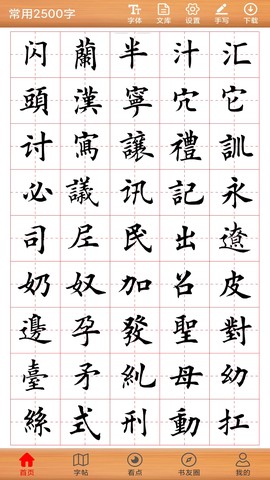 常用2500字
字体 文库 设置 手写 下载
闪 蘭 半 汁 汇
頭 漢 寧 穴 它
讨 寫 讓 禮 訓
必 議 讯 記 永
司 尼 民 出 遼
奶 奴 加 召 皮
邊 孕 發 聖 對
臺 矛 糾 母 幼
絲 式 刑 動 扛
首页 字帖 看点 书友圈 我的